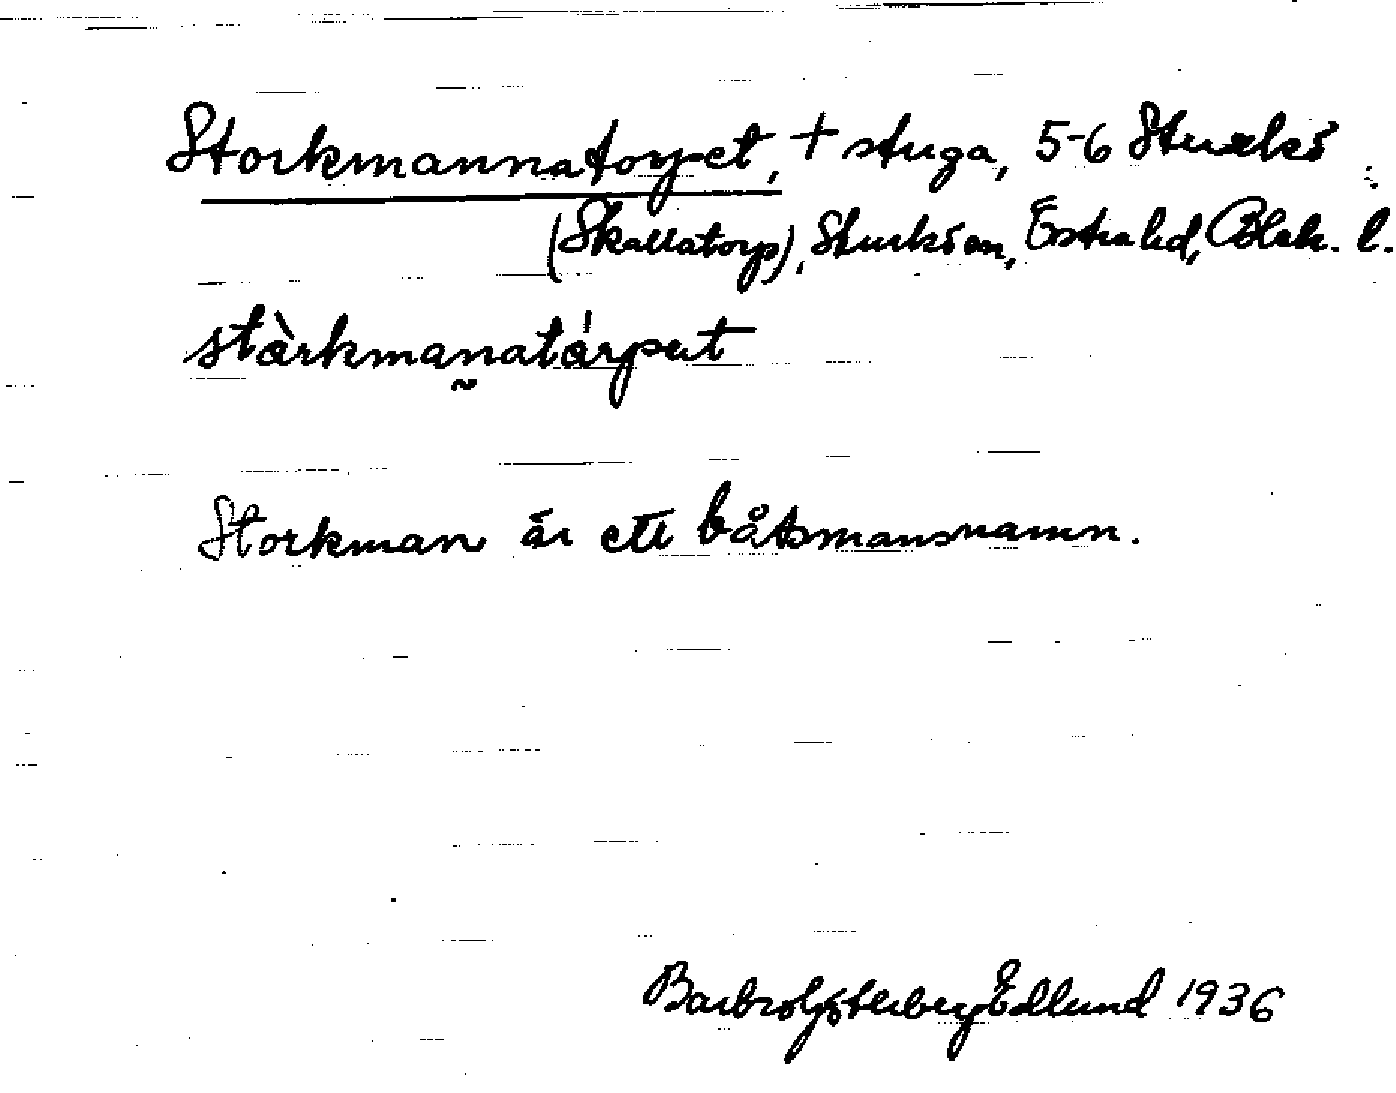 Storkmannatorpet, + stuga, 5-6 Sturkö
(Skallatorp), Sturkö sn, Östra hd, Blek. l.
stàrkmanatárpet
Storkman är ett båtsmansnamn.
Edlund 1936